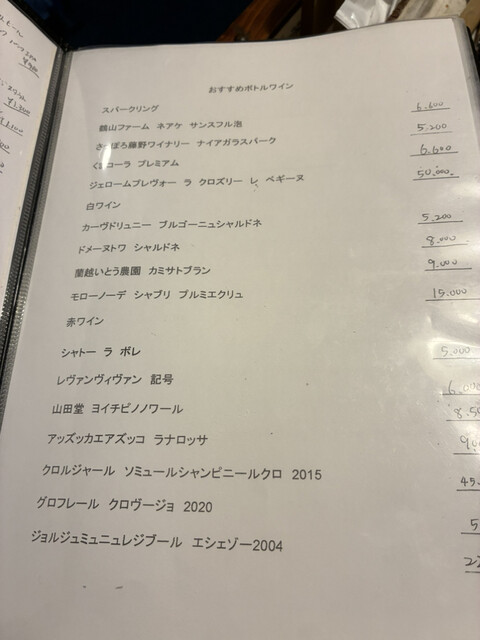 おすすめボトルワイン
スパークリング
鶴山ファーム ネアケ サンスフル泡 6.600
さっぽろ藤野ワイナリー ナイアガラスパーク 5.200
コーラ プレミアム 6.600
ジェロームプレヴォー ラ クロズリー レ ベギーヌ 50.000
白ワイン
カーヴドリュニー ブルゴーニュシャルドネ 5.200
ドメーヌトワ シャルドネ 8.000
蘭越いとう農園 カミサトブラン 9.000
モローノーデ シャブリ プルミエクリュ 15.000
赤ワイン
シャトー ラ ボレ 5.000
レヴァンヴィヴァン 記号 6.000
山田堂 ヨイチピノノワール 8.50
アッズッカエアズッコ ラナロッサ
クロルジャール ソミュールシャンピニールクロ 2015 45.
グロフレール クロヴージョ 2020 5
ジョルジュミュニュレジブール エシェゾー2004